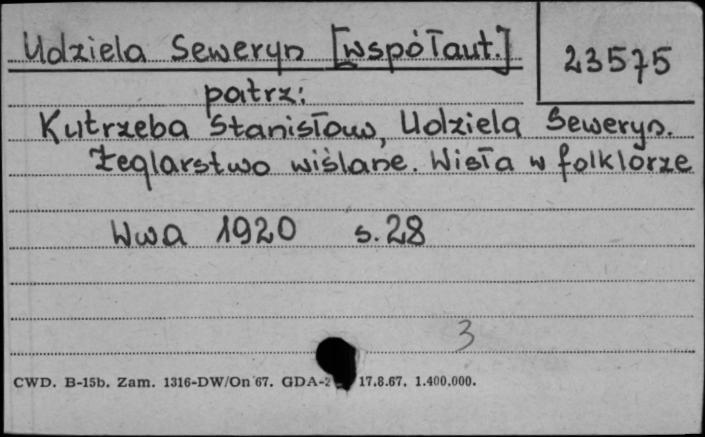 Udziela Seweryn [współaut.]
23575
patrz:
Kutrzeba Stanisław, Udziela Seweryn.
Żeglarstwo wiślane. Wisła w folklorze
Wwa 1920 s. 28
3
CWD. B-15b. Zam. 1316-DW/On 67. GDA-2 17.8.67. 1.400.000.